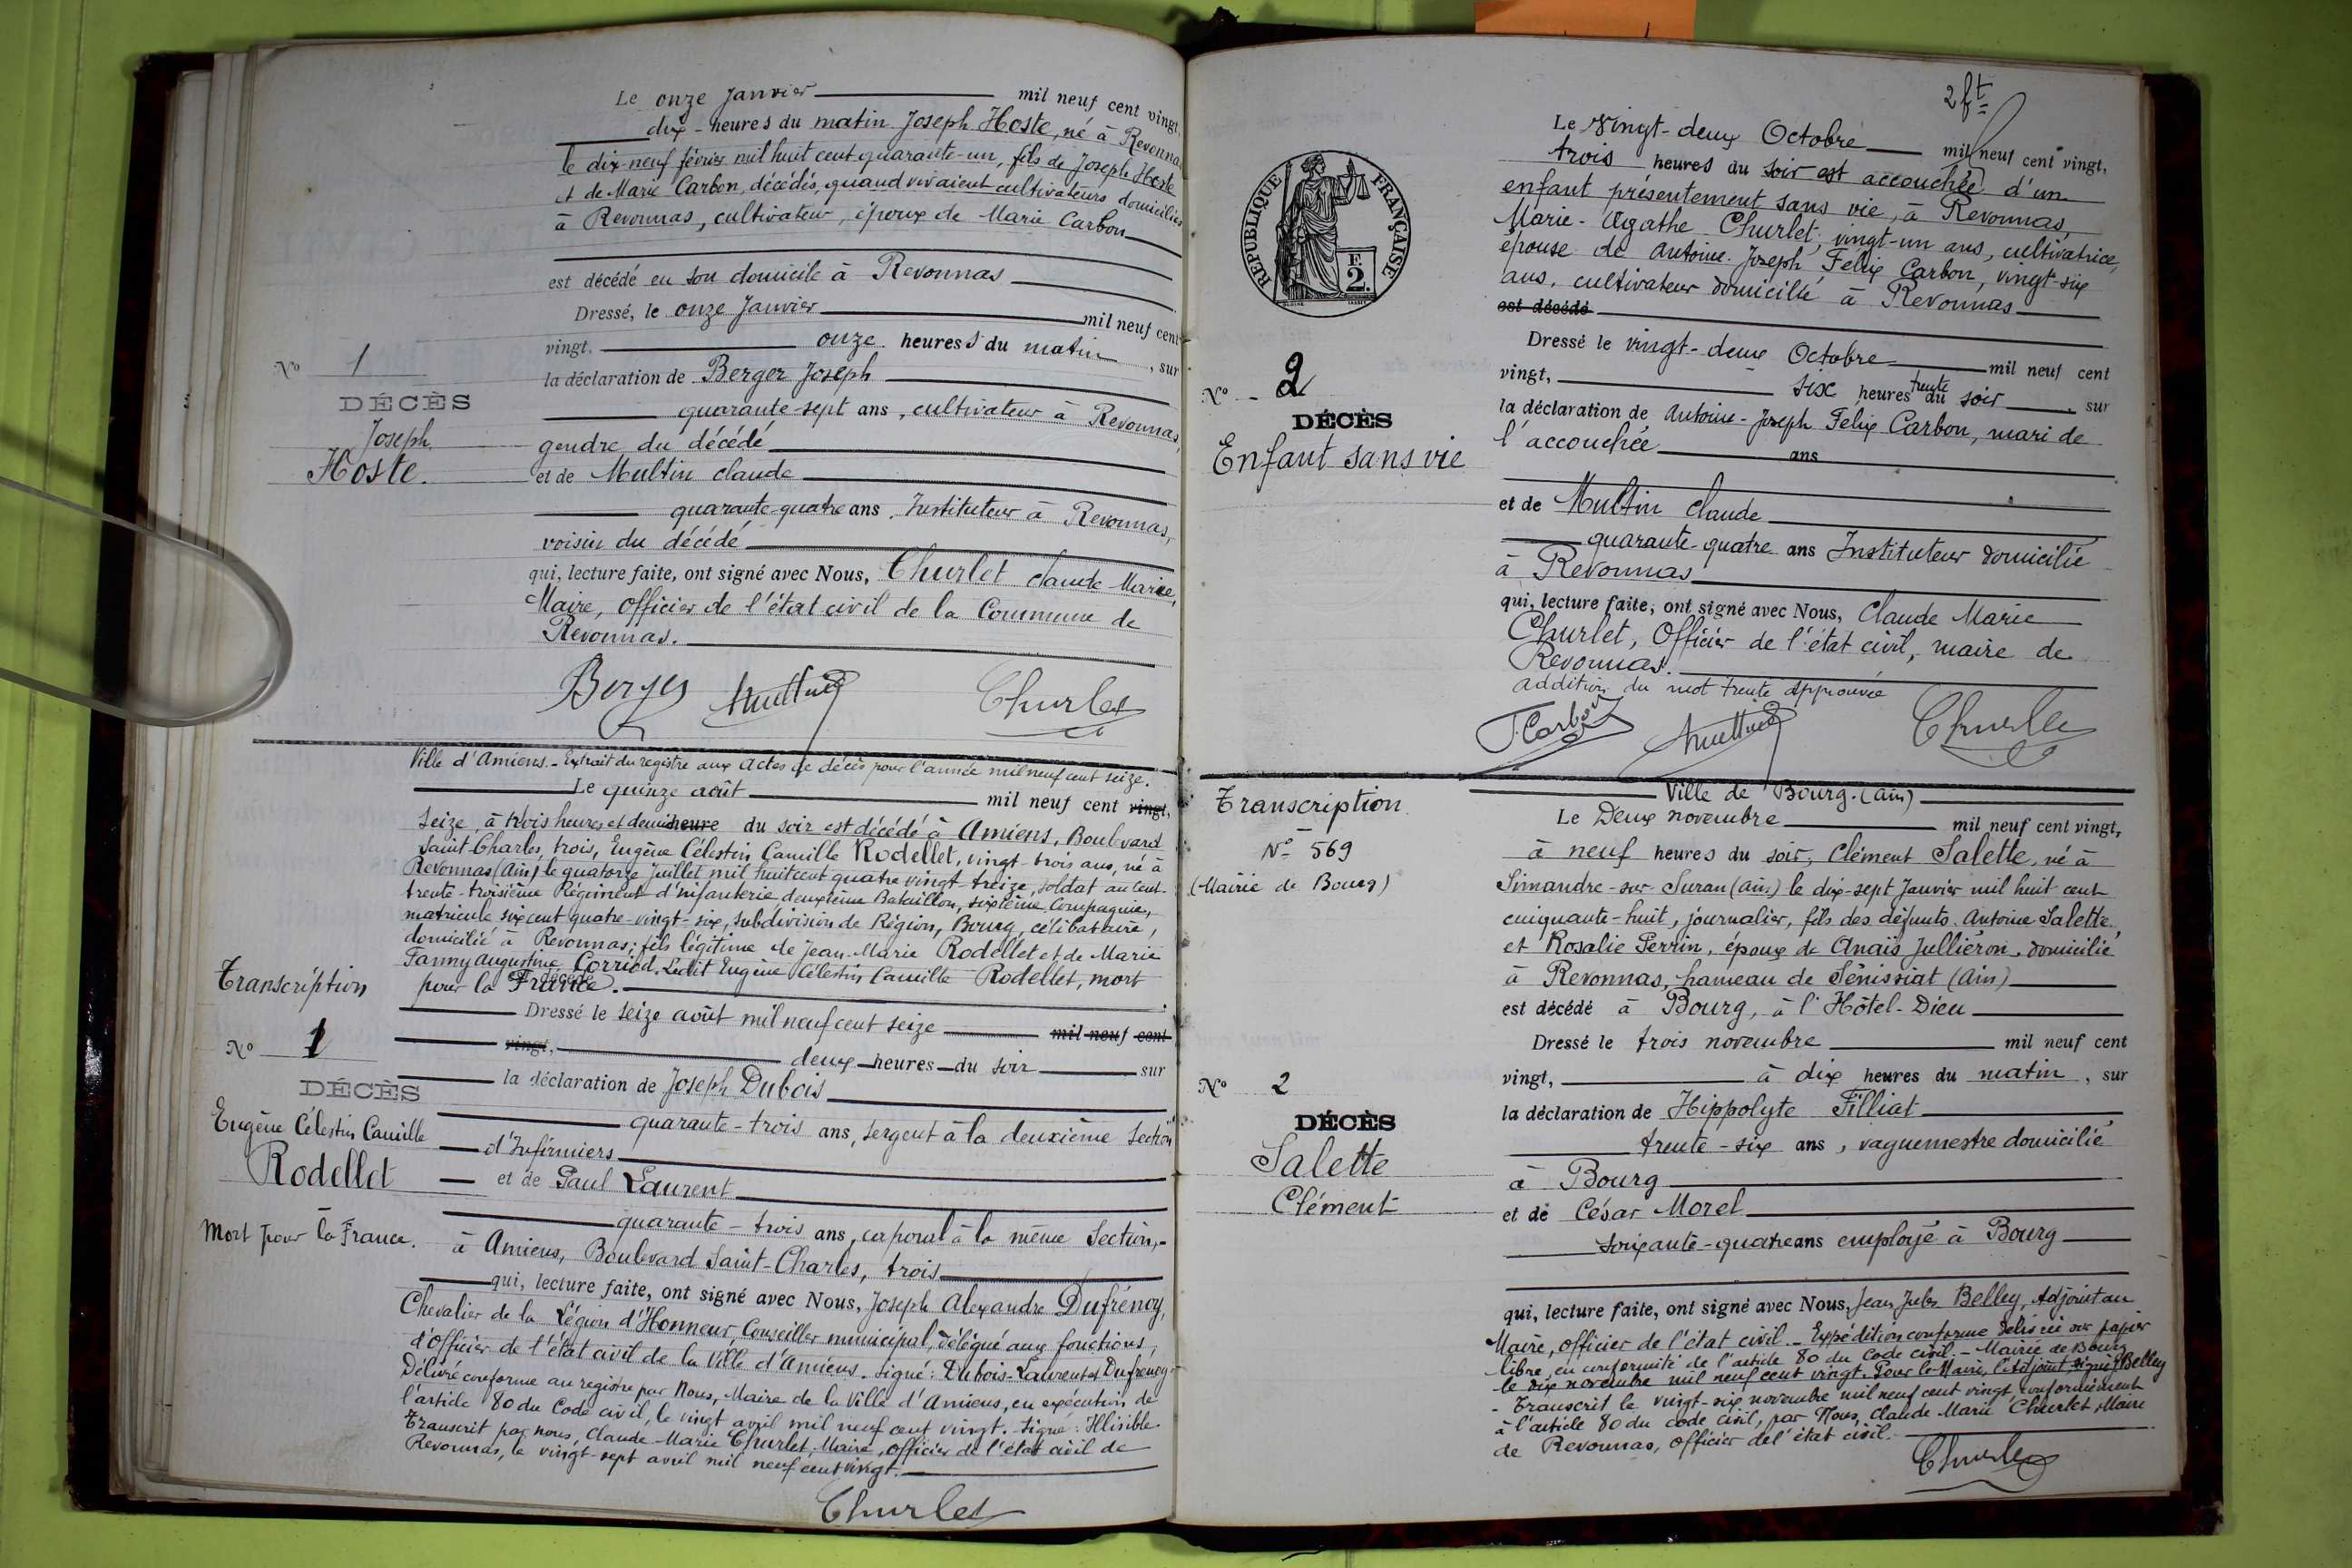 Le onze Janvier mil neuf cent vingt,
dix - heures du matin Joseph Hoste, né à Revonnas
le dix-neuf février mil huit cent quarante-un, fils de Joseph Hoste
et de Marie Carbon, décédés, quand vivaient cultivateurs domiciliés
à Revonnas, cultivateur, époux de Marie Carbon
est décédé en son domicile à Revonnas
Dressé, le onze Janvier mil neuf cent
vingt. onze heures du matin, sur
la déclaration de Berger Joseph
quarante-sept ans, cultivateur à Revonnas,
gendre du décédé
et de Multin Claude
quarante-quatre ans, Instituteur à Revonnas,
voisin du décédé
qui, lecture faite, ont signé avec Nous, Churlet Claude Marie,
Maire, Officier de l'état civil de la Commune de
Revonnas.
No 1
DÉCÈS
Joseph
Hoste.
Berger Multin Churlet
Ville d'Amiens. - Extrait du registre aux Actes de décès pour l'année mil neuf cent seize.
Le quinze août mil neuf cent vingt,
seize, à trois heures et demi heure du soir est décédé à Amiens, Boulevard
Saint-Charles, trois, Eugène Célestin Camille Rodellet, vingt-trois ans, né à
Revonnas (Ain) le quatorze juillet mil huit cent quatre vingt-treize, soldat au cent-
trente-troisième Régiment d'infanterie, deuxième Bataillon, sixième Compagnie,
matricule six cent quatre-vingt-six, subdivision de Région, Bourg, célibataire,
domicilié à Revonnas; fils légitime de Jean-Marie Rodellet et de Marie
Fanny Augustine Corriod. Ledit Eugène Célestin Camille Rodellet, mort
pour la France.
Dressé le seize août mil neuf cent seize mil neuf cent
vingt, deux heures du soir sur
la déclaration de Joseph Dubois
quarante-trois ans, sergent à la deuxième Section
d'Infirmiers
et de Paul Laurent
quarante-trois ans, caporal à la même Section,-
à Amiens, Boulevard Saint-Charles, trois
qui, lecture faite, ont signé avec Nous, Joseph Alexandre Dufrénoy,
Chevalier de la Légion d'Honneur, Conseiller municipal, délégué aux fonctions,
d'Officier de l'état civil de la Ville d'Amiens. signé: Dubois-Laurent et Dufrenoy.
Délivré conforme au registre par Nous, Maire de la Ville d'Amiens, en exécution de
l'article 80 du Code civil, le vingt avril mil neuf cent vingt. signé: Illisible.
Transcrit par nous, Claude-Marie Churlet, Maire, officier de l'état civil de
Revonnas, le vingt-sept avril mil neuf cent vingt.
Churlet
Transcription
No 1
DÉCÈS
Eugène Célestin Camille
Rodellet
Mort pour la France.
2 ft
Le vingt-deux Octobre mil neuf cent vingt,
trois heures du soir est accouchée d'un
enfant présentement sans vie, à Revonnas,
Marie-Agathe Churlet, vingt-un ans, cultivatrice,
épouse de Antoine-Joseph Félix Carbon, vingt-six
ans, cultivateur domicilié à Revonnas
est décédé
Dressé le vingt-deux Octobre mil neuf cent
vingt, six heures trente du soir, sur
la déclaration de Antoine-Joseph Félix Carbon, mari de
l'accouchée ans
et de Multin Claude
quarante-quatre ans Instituteur domicilié
à Revonnas
qui, lecture faite, ont signé avec Nous, Claude Marie
Churlet, Officier de l'état civil, maire de
Revonnas.
addition du mot trente approuvée
REPUBLIQUE FRANÇAISE
F.
2.
No 2
DÉCÈS
Enfant sans vie
F Carbon Multin Churlet
Ville de Bourg. (Ain)
Le Deux novembre mil neuf cent vingt,
à neuf heures du soir, Clément Salette, né à
Simandre-sur-Suran (Ain) le dix-sept Janvier mil huit cent
cinquante-huit, journalier, fils des défunts Antoine Salette,
et Rosalie Perrin, époux de Anaïs Jullieron, domicilié
à Revonnas, hameau de Sénissiat (Ain)
est décédé à Bourg, à l'Hôtel-Dieu
Dressé le trois novembre mil neuf cent
vingt, à dix heures du matin, sur
la déclaration de Hippolyte Filliat
trente-six ans, vaguemestre domicilié
à Bourg
et de César Morel
soixante-quatre ans employé à Bourg
qui, lecture faite, ont signé avec Nous, Jean Jules Belley, Adjoint au
Maire, officier de l'état civil. - Expédition conforme délivrée sur papier
libre, en conformité de l'article 80 du Code civil. - Mairie de Bourg
le dix novembre mil neuf cent vingt. Pour le Maire, l'Adjoint, signé: Belley
- Transcrit le vingt-six novembre mil neuf cent vingt, conformément
à l'article 80 du code civil, par Nous, Claude Marie Churlet, Maire
de Revonnas, officier de l'état civil.
Churlet
Transcription
No 569
(Mairie de Bourg)
No 2
DÉCÈS
Salette
Clément